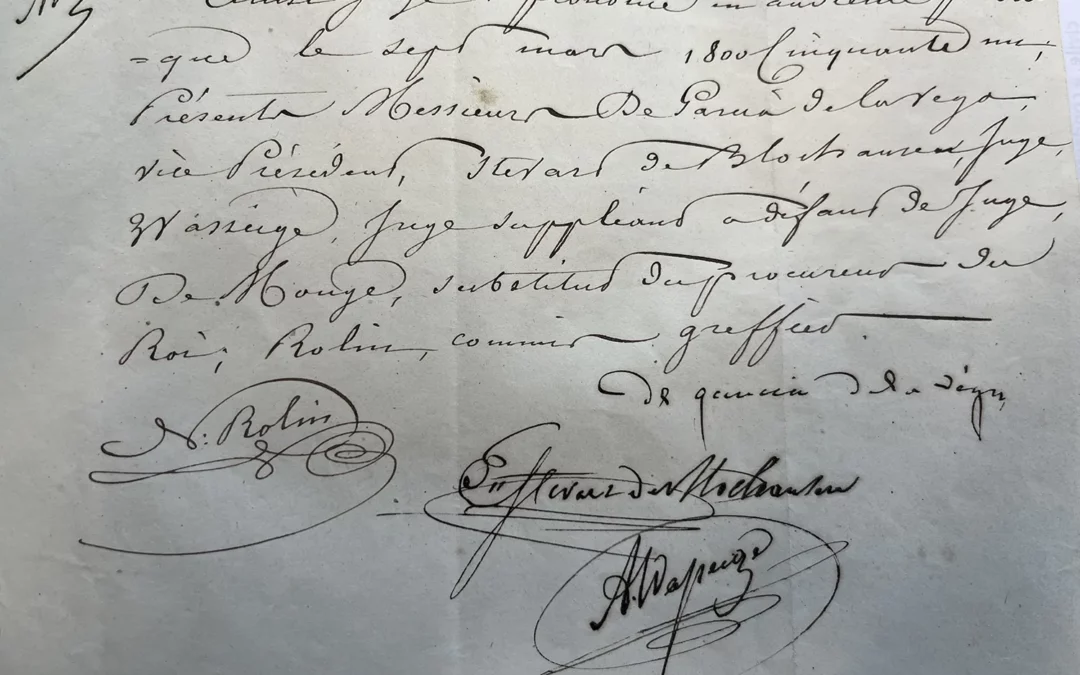 prononcé en audience publi
=que le sept mars 1800 Cinquante un;
Présents Messieurs De Garcia de la Vega,
vice Président, Stevart de Blochausen, Juge,
Wasseige, Juge suppléant a défaut de Juge,
De Mouge, substitut du procureur du
Roi; Rolin, commis greffier
de garcia de la véga
N. Rolin
Stevart de Blochausen
A. Wasseige